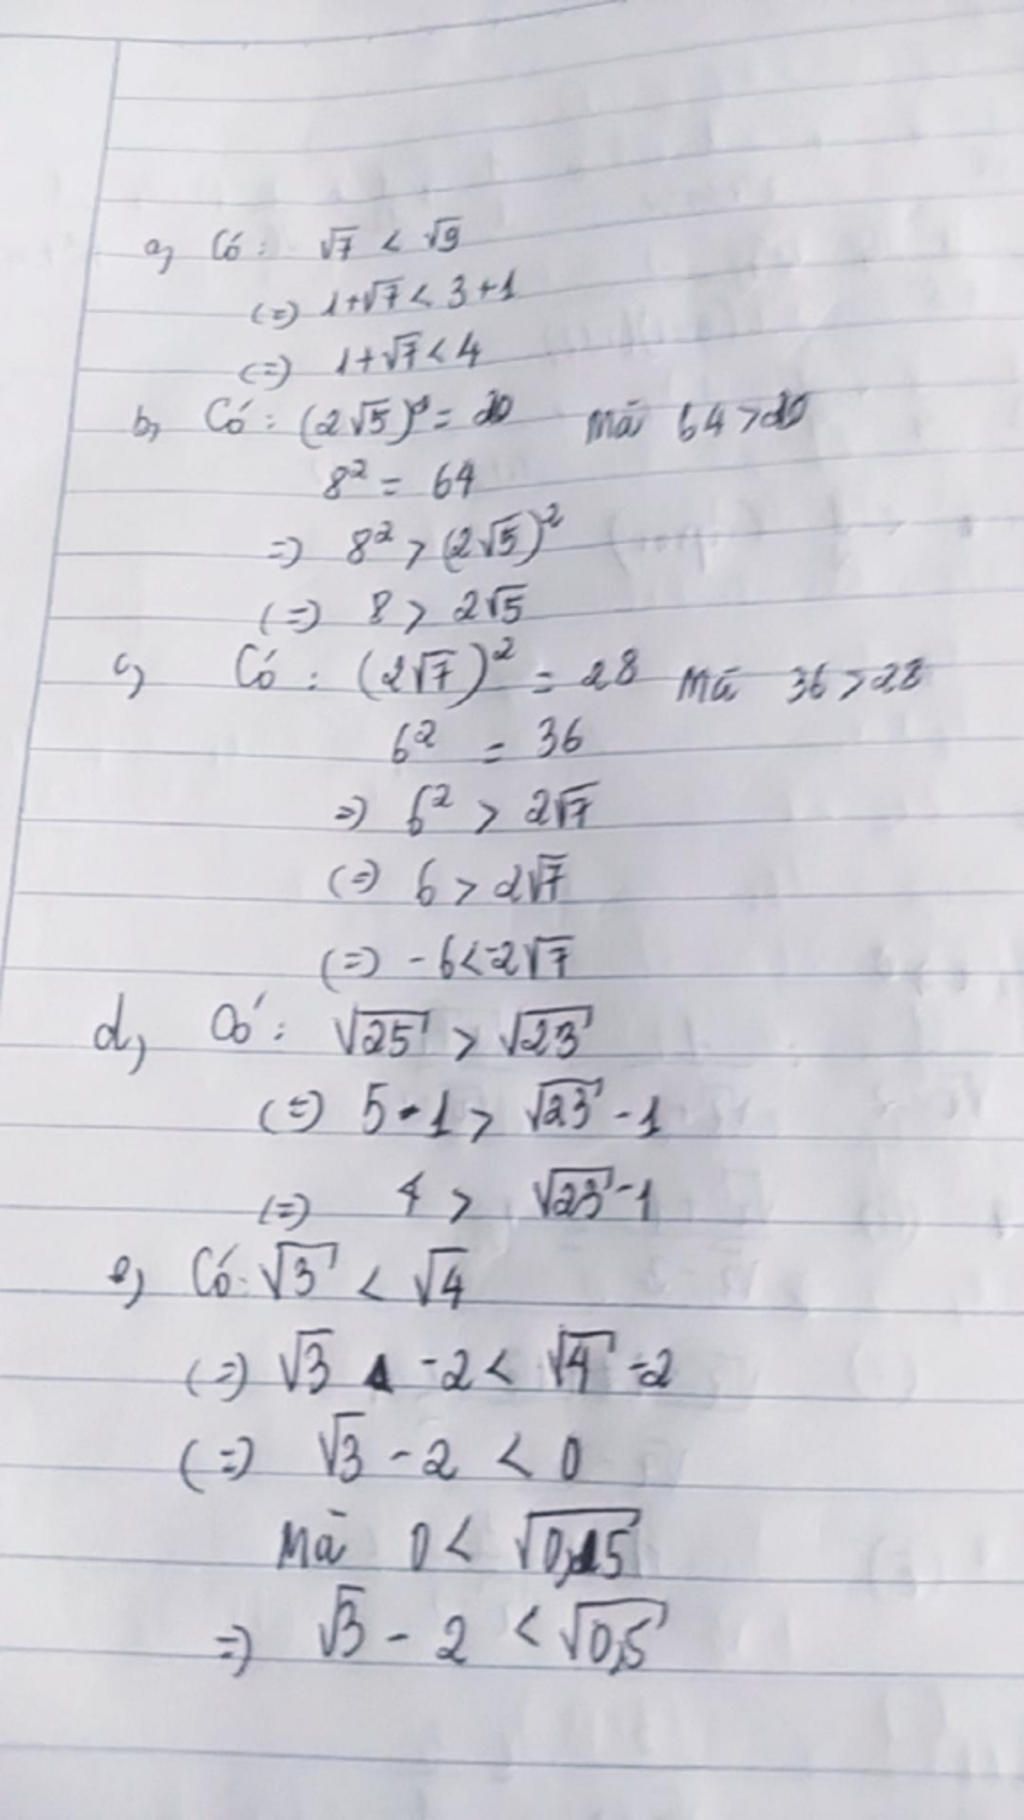 a, Có: √7 < √9
(=) 1+√7 < 3+1
(=) 1+√7 < 4
b, Có: (2√5)² = 20 Mà 64 > 20
8² = 64
=) 8² > (2√5)²
(=) 8 > 2√5
c, Có: (2√7)² = 28 Mà 36 > 28
6² = 36
=) 6² > 2√7
(=) 6 > 2√7
(=) -6 < -2√7
d, Có: √25 > √23
(=) 5-1 > √23 - 1
(=) 4 > √23 - 1
e, Có: √3 < √4
(=) √3 -2 < √4 -2
(=) √3 - 2 < 0
Mà 0 <
=) √3 - 2 < √0,5